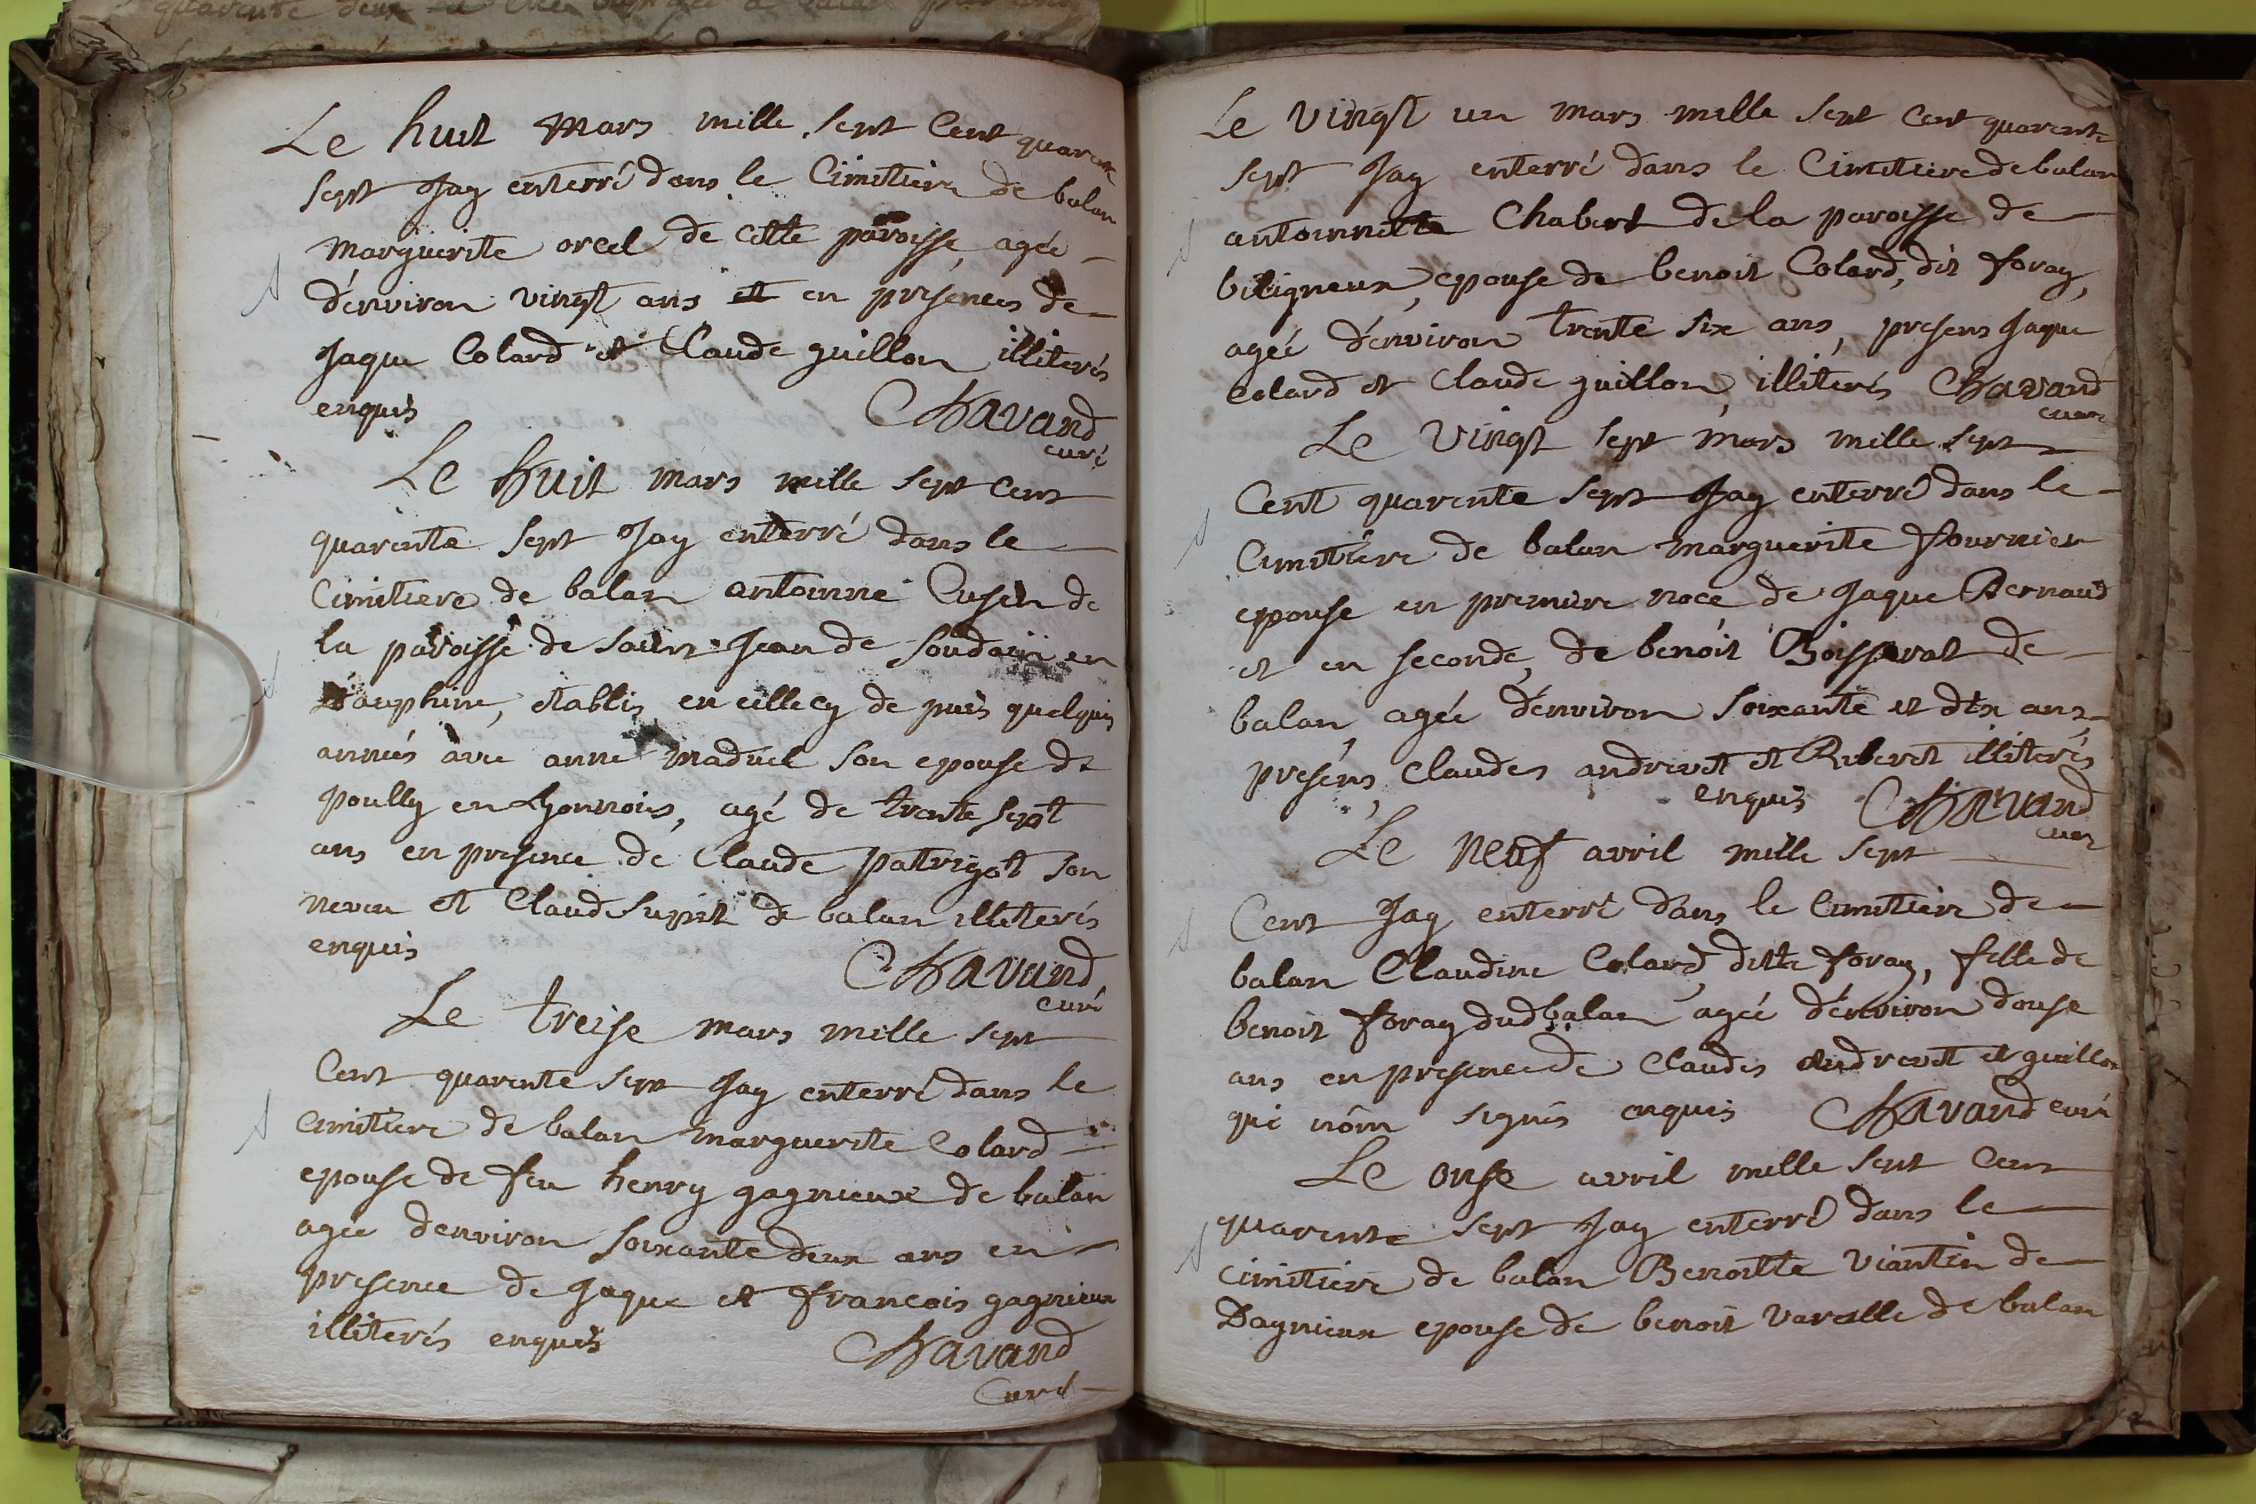 Le huit mars mille sept Cent quarante
sept Jay enterré dans le Cimitiere de balan
marguerite orcel de cette paroisse, agée
d'environ vingt ans et en présences de
Jaque Colard et Claude guillon illiterés
enquis Chavand
curé
Le huit mars mille sept cent
quarente sept Jay enterré dans le
Cimitiere de balan antoinne Cusin de
la paroisse de saint Jean de Soudain en
dauphine, etablis en cellecy de puis quelques
années avec anne maduel son epouse de
poully en Lyonnois, agé de trente sept
ans en presence de Claude patrigot son
neveu et Claud Supit de balan illiterés
enquis Chavand
curé
Le treise mars mille sept
Cent quarente sept Jay enterré dans le
cimitiere de balan marguerite Colard
epouse de feu henry gagnieux de balan
agée denviron soixante deux ans en
presence de Jaque et francois gagnieux
illiterés enquis Chavand
Curé
Le vingt un mars mille sept cent quarente
sept Jay enterré dans le Cimitiere de balan
antoinnette Chabert de la paroisse de
biligneux, epouse de benoit Colard, dit foray,
agée d'environ trente six ans, presens Jaque
Colard et Claude guillon, illiterés Chavand
curé
Le vingt sept mars mille sept
Cent quarente sept Jay enterré dans le
Cimitiere de balan marguerite fournier
epouse en premiere noce de Jaque Bernaud
et en seconde, de benoit Boisserat de
balan, agée d'environ soixante et dix ans,
presens, Claudes andrevet et Riberet illiterés
enquis Chavand
curé
Le neuf avril mille sept
Cent Jay enterré dans le Cimitiere de
balan Claudine Colard, ditte foray, fille de
benoit foray dud balan agée d'environ douse
ans en presence de Claudes andrevet et guillon
qui nom signés enquis Chavand curé
Le onse avril mille sept Cent
quarente sept Jay enterré dans le
cimitiere de balan Benoitte viantin de
Dagnieux epouse de benoit varelle de balan